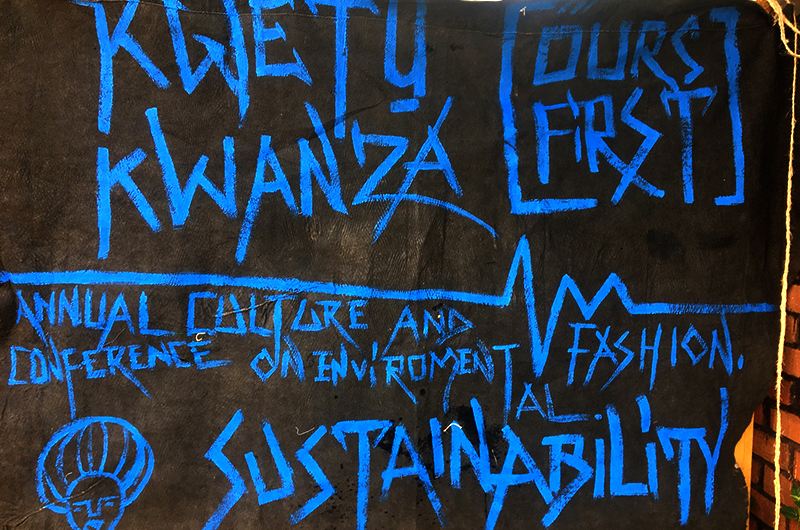 KWETU
KWANZA
[OURS
FIRST]
ANNUAL CULTURE AND FASHION.
CONFERENCE ON ENVIROMENTAL
SUSTAINABILITY